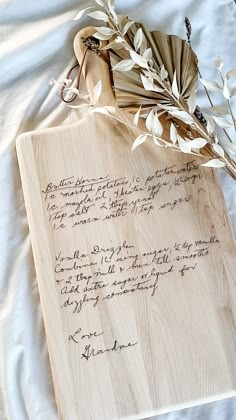 Butter Horns
1 c. mashed potatoes, 1 c. sugar
1 c. mazola oil, 4 beaten eggs, 2 tbsp
1 tsp salt, 2 tbsp yeast
1 c warm water, 1 tsp sugar
Vanilla Drizzle
Combine 1 1/2 c icing sugar, 1/2 tsp vanilla
+ 2 tbsp milk + mix till smooth
Add extra sugar or liquid for
drizzling consistency
Love
Grandma